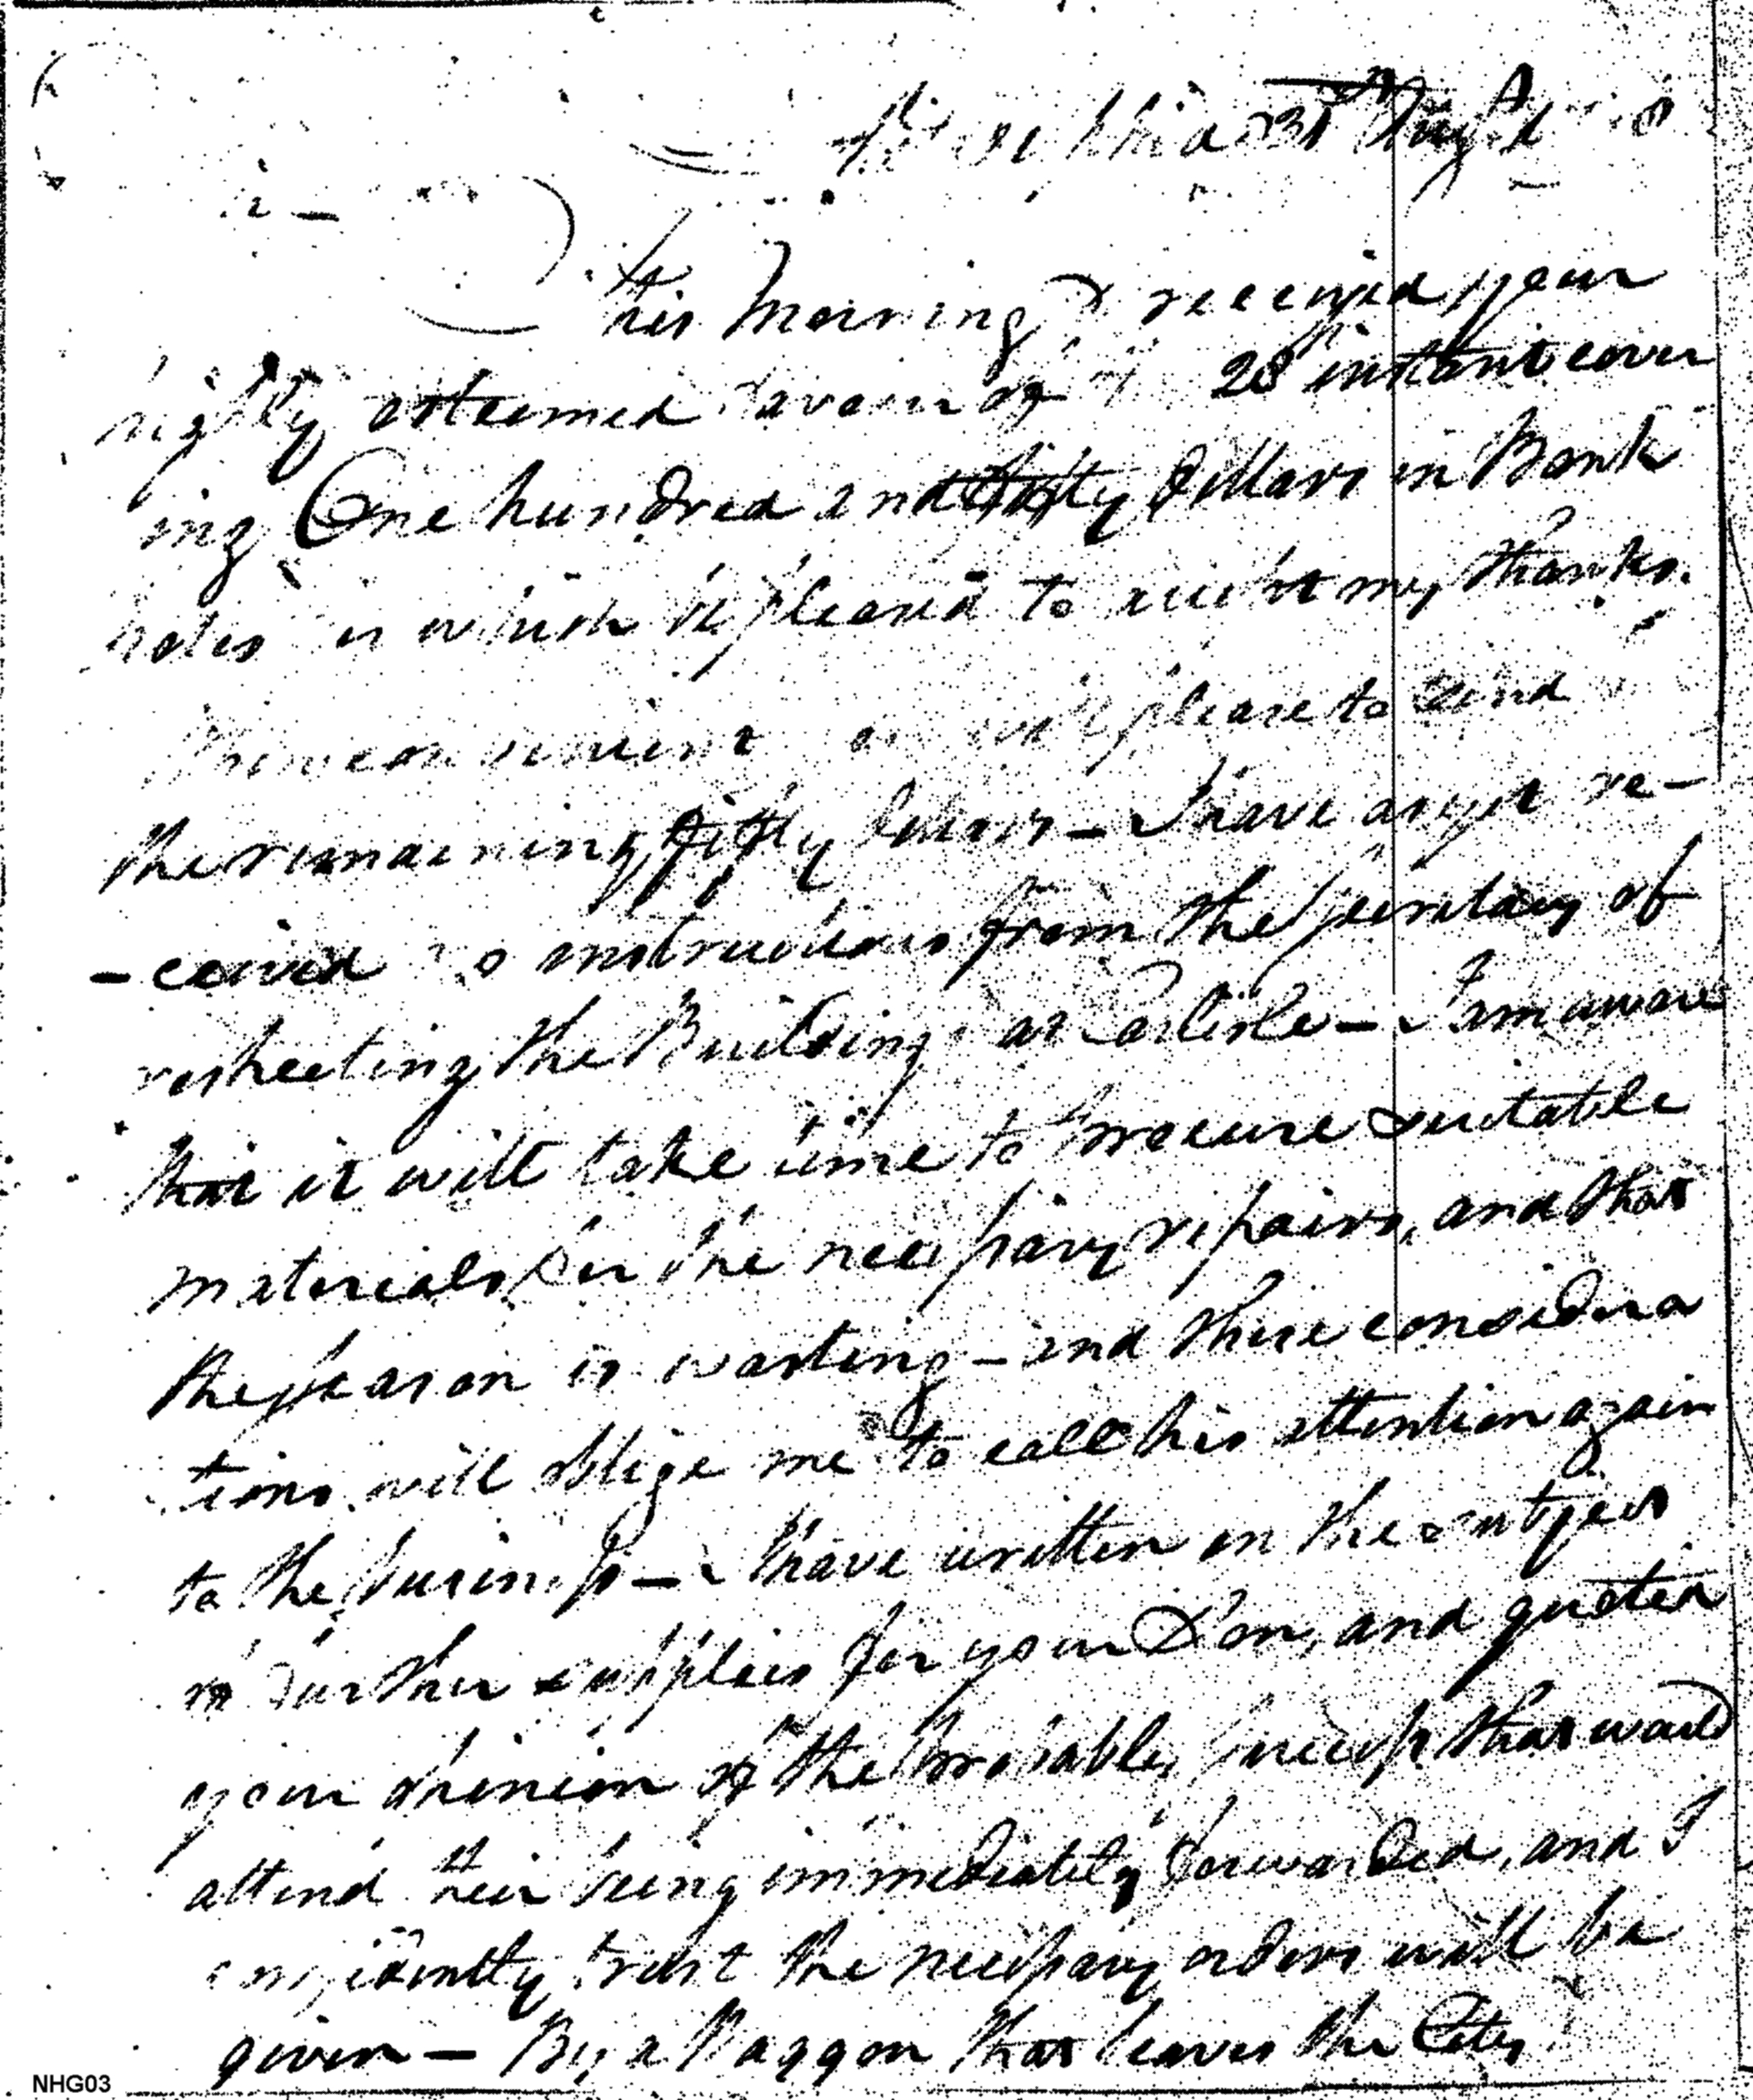 Philadelphia 31st Augt
This Morning I received your
highly esteemed favour of the 28th instant cover
ing One hundred and fifty Dollars in Bank
notes for which be pleased to accept my thanks.
When convenient you will please to send
the remaining fifty Dollars — I have as yet re-
-ceived no instructions from the Secretary of
respecting the Buildings at Carlisle — I am aware
that it will take time to procure suitable
materials for the necessary repairs, and that
the season is wasting — and these considera
tions will oblige me to call his attention again
to the business — I have written on the subject
of further supplies for your Son, and quoted
your opinion of the probable success that would
attend their being immediately forwarded, and I
confidently trust the necessary orders will be
given — By a Waggon that leaves the City
NHG03